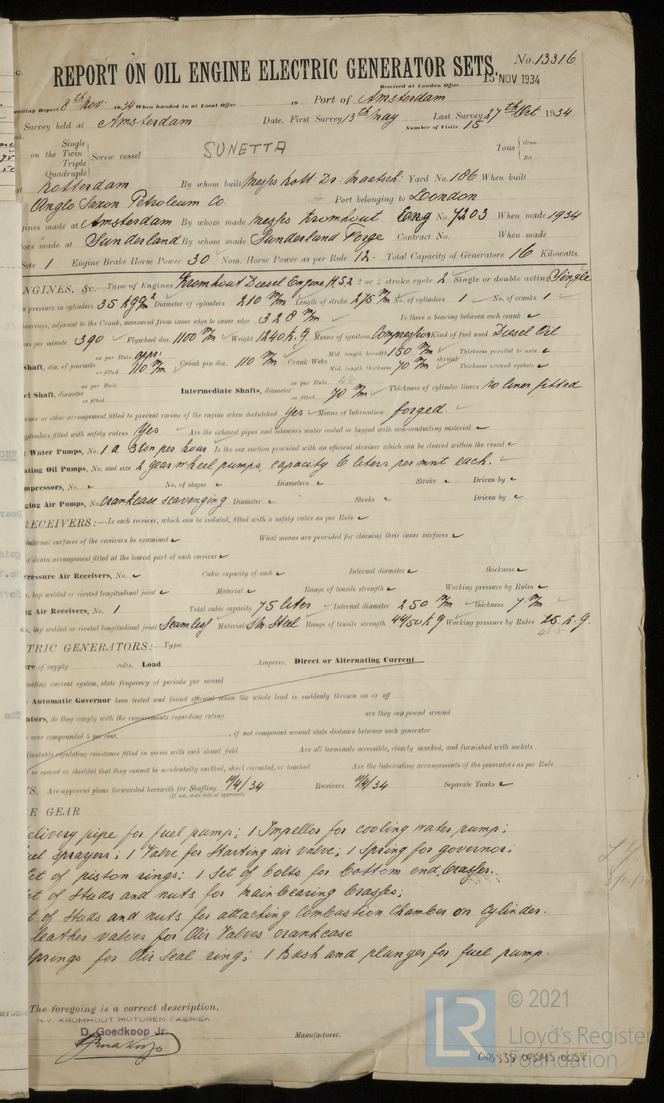 No. 13316
REPORT ON OIL ENGINE ELECTRIC GENERATOR SETS.
Received at London Office 15 NOV 1934
writing Report 8th Nov: 1934 When handed in at Local Office 19 Port of Amsterdam
Survey held at Amsterdam Date, First Survey 13th May Last Survey 27th Oct 1934
Number of Visits 15
Single
on the Twin Screw vessel SUNETTA Tons Gross
Triple Net
Quadruple
Rotterdam By whom built Messrs Rott Dr: Maatsch: Yard No. 186 When built
Anglo Saxon Petroleum Co Port belonging to London
gines made at Amsterdam By whom made Messrs Kromhout Eng No 7203 When made 1934
ors made at Sunderland By whom made Sunderland Forge Contract No. When made
Sets 1 Engine Brake Horse Power 30 Nom. Horse Power as per Rule 12. Total Capacity of Generators 16 Kilowatts.
NGINES, &c. Type of Engines Kromhout Diesel Engine 2 or 4 stroke cycle 2 Single or double acting Single
pressure in cylinders 35 Diameter of cylinders 210 m/m Length of stroke 275 m/m No. of cylinders 1 No. of cranks 1
bearings, adjacent to the Crank, measured from inner edge to inner edge 328 m/m Is there a bearing between each crank
ns per minute 390 Flywheel dia. 1100 m/m Weight 1240 k.g. Means of ignition Compression Kind of fuel used Diesel Oil
Shaft, dia. of journals as per Rule appr: as fitted 110 m/m Crank pin dia. 110 m/m Crank Webs Mid. length breadth 150 m/m Thickness parallel to axis
Mid. length thickness 70 m/m shrunk Thickness around eyehole
el Shaft, diameter as per Rule as fitted Intermediate Shafts, diameter as per Rule as fitted 70 m/m Thickness of cylinder liners No liner fitted
or other arrangement fitted to prevent racing of the engine when declutched Yes Means of lubrication forged.
cylinders fitted with safety valves Yes Are the exhaust pipes and silencers water cooled or lagged with non-conducting material
Water Pumps, No. 1 a 3 ton per hour Is the sea suction provided with an efficient strainer which can be cleared within the vessel
ating Oil Pumps, No. and size 2 gearwheel pumps, capacity 6 liters per mnt each.
mpressors, No. No. of stages Diameters Stroke Driven by
ging Air Pumps, No. crankcase scavenging Diameter Stroke Driven by
RECEIVERS:—Is each receiver, which can be isolated, fitted with a safety valve as per Rule
internal surfaces of the receivers be examined What means are provided for cleaning their inner surfaces
a drain arrangement fitted at the lowest part of each receiver
ressure Air Receivers, No. Cubic capacity of each Internal diameter thickness
s, lap welded or riveted longitudinal joint Material Range of tensile strength Working pressure by Rules
ng Air Receivers, No. 1 Total cubic capacity 75 liter Internal diameter 250 m/m Thickness 7 m/m
s, lap welded or riveted longitudinal joint Seamless Material S.M. Steel Range of tensile strength 44/50 k.g Working pressure by Rules 25 k.g.
TRIC GENERATORS:—Type
re of supply volts. Load Amperes. Direct or Alternating Current
nating current system, state frequency of periods per second
Automatic Governor been tested and found efficient when the whole load is suddenly thrown on or off
ators, do they comply with the requirements regarding rating are they compound wound
over compounded 5 per cent. , if not compound wound state distance between each generator
djustable regulating resistance fitted in series with each shunt field Are all terminals accessible, clearly marked, and furnished with sockets
so spaced or shielded that they cannot be accidentally earthed, short circuited, or touched Are the lubricating arrangements of the generators as per Rule
S. Are approved plans forwarded herewith for Shafting 11/4/34 Receivers 11/4/34 Separate Tanks
(If not, state date of approval)
E GEAR
elivery pipe for fuel pump; 1 Impeller for cooling water pump;
uel sprayers; 1 Valve for starting air valve; 1 Spring for governor;
et of piston rings; 1 Set of bolts for bottom end brasses.
t of studs and nuts for mainbearing brasses;
t of studs and nuts for attaching Combustion Chamber on Cylinder.
leather valves for Air Valves crankcase
springs for Air Seal ring; 1 Bush and plunger for fuel pump.
The foregoing is a correct description.
N.V. KROMHOUT MOTOREN FABRIEK
D. Goedkoop Jr.
Manufacturer.
LR
© 2021
Lloyd's Register
Foundation